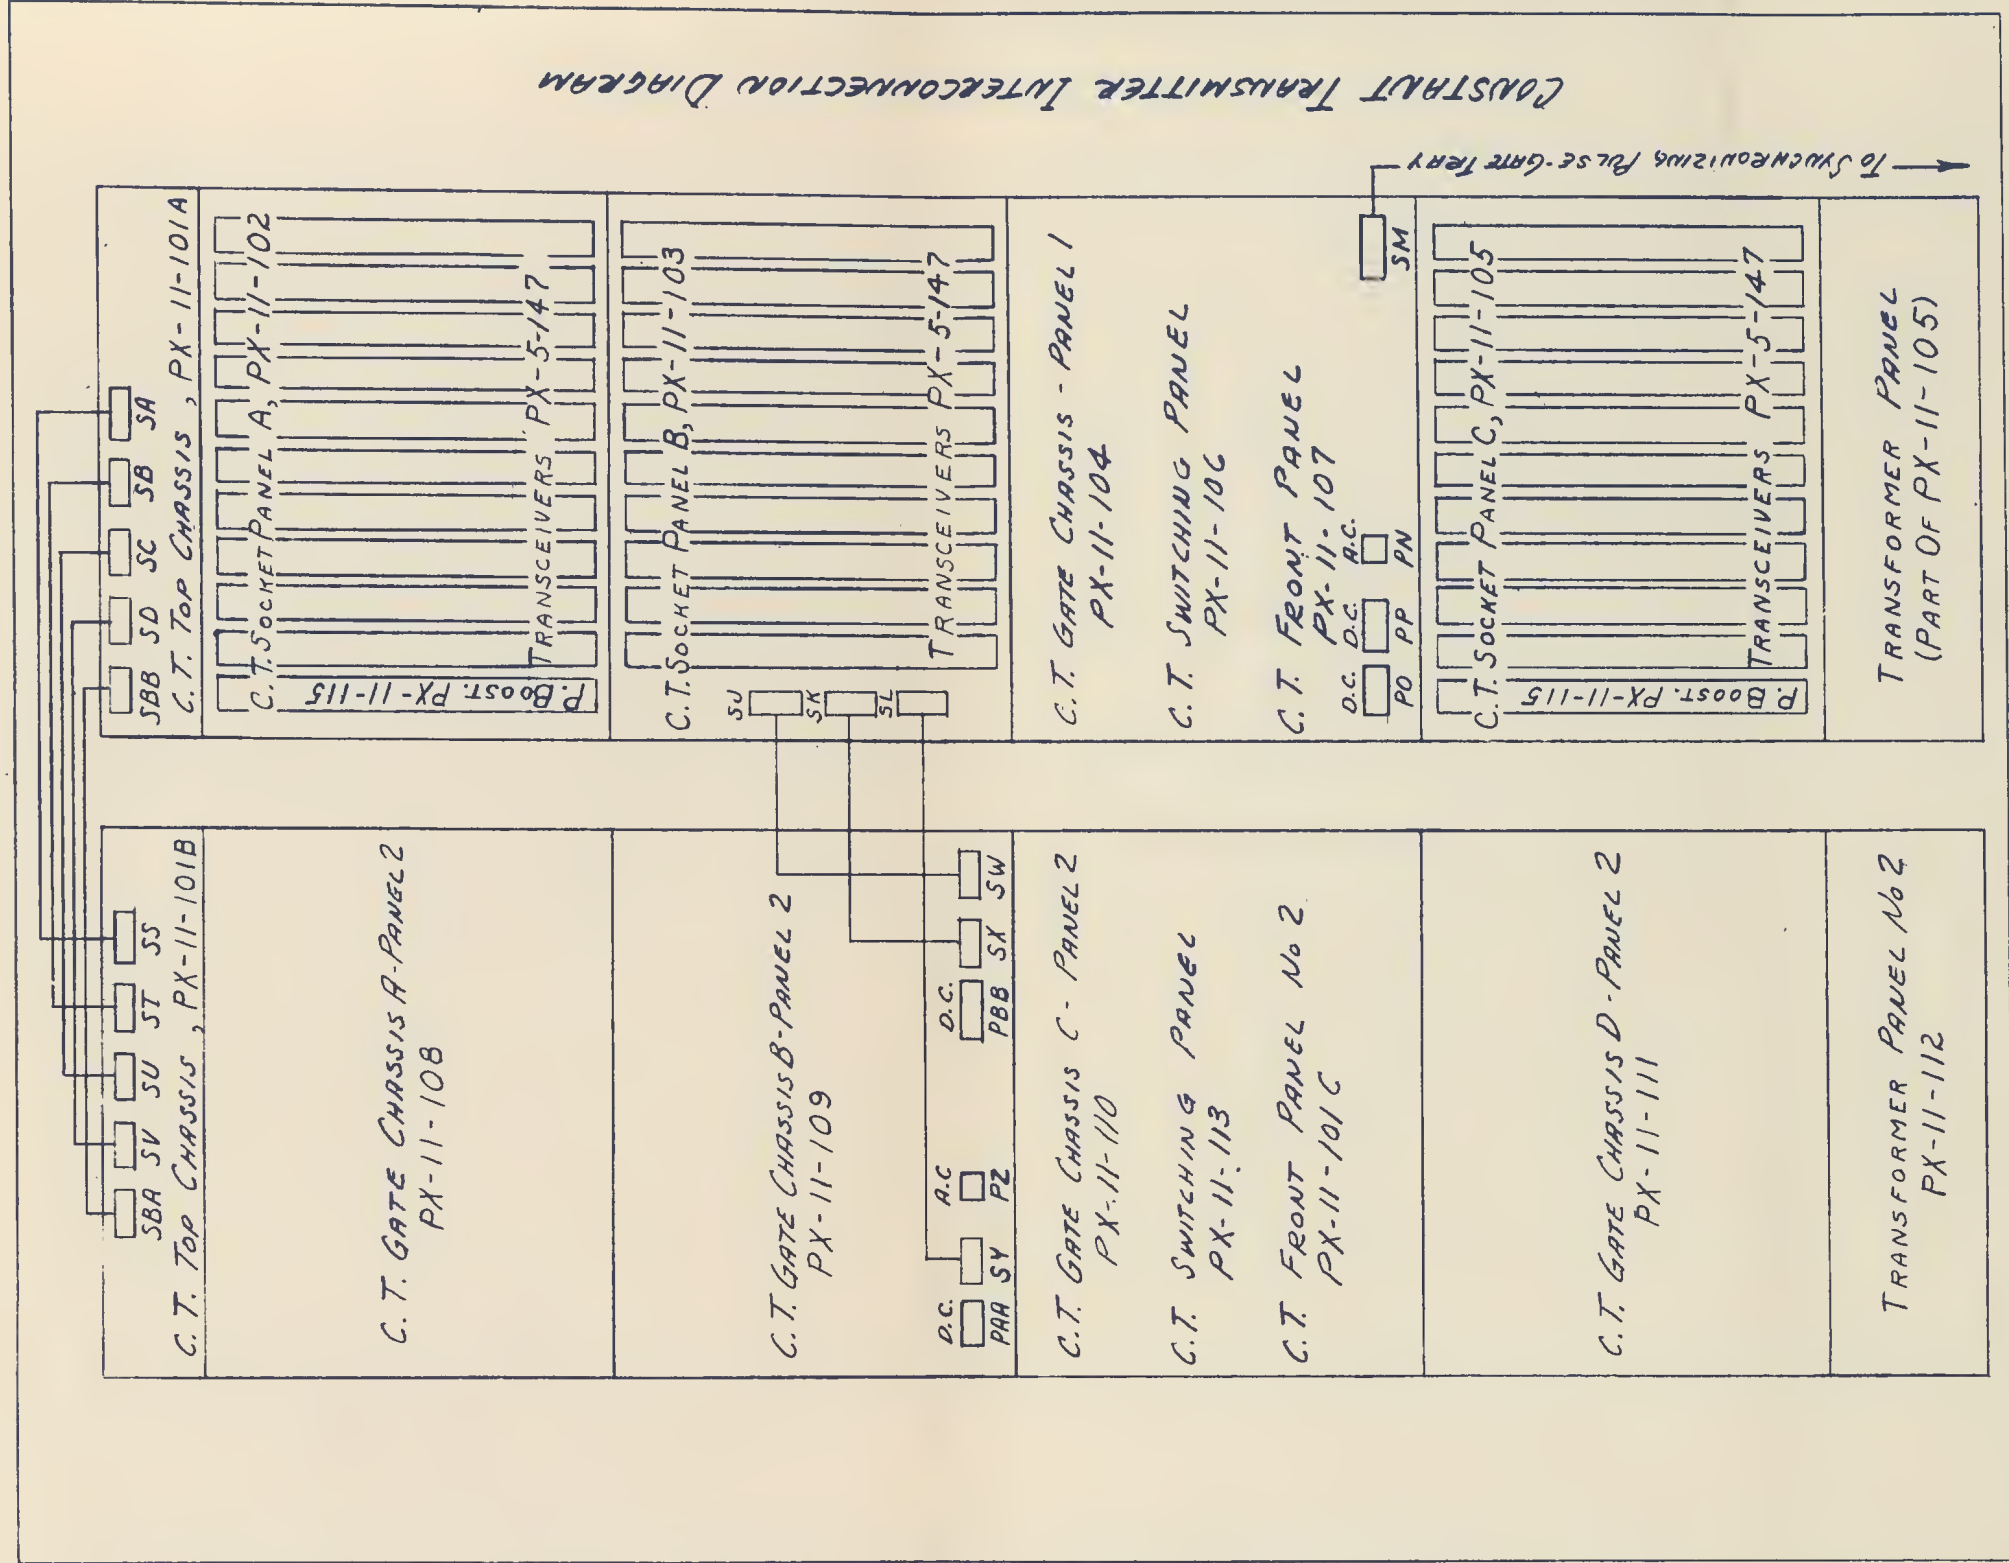 CONSTANT TRANSMITTER INTERCONNECTION DIAGRAM
TO SYNCHRONIZING PULSE-GATE TRAY
SA
SB
SC
SD
SBB
C. T. TOP CHASSIS, PX-11-101A
C.T. SOCKET PANEL A, PX-11-102
TRANSCEIVERS PX-5-147
P. BOOST. PX-11-115
C.T. SOCKET PANEL B, PX-11-103
TRANSCEIVERS PX-5-147
SJ
SK
SL
C. T. GATE CHASSIS - PANEL 1
PX-11-104
C. T. SWITCHING PANEL
PX-11-106
C. T. FRONT PANEL
PX-11-107
D.C.
D.C.
A.C.
PO
PP
PN
SM
C.T. SOCKET PANEL C, PX-11-105
TRANSCEIVERS PX-5-147
P. BOOST. PX-11-115
TRANSFORMER PANEL
(PART OF PX-11-105)
SBA
SV
SU
ST
SS
C. T. TOP CHASSIS, PX-11-101B
C. T. GATE CHASSIS A-PANEL 2
PX-11-108
C.T. GATE CHASSIS B-PANEL 2
PX-11-109
D.C.
A.C
D.C.
PAA
SY
PZ
PBB
SX
SW
C.T. GATE CHASSIS C- PANEL 2
PX-11-110
C.T. SWITCHING PANEL
PX-11-113
C.T. FRONT PANEL No 2
PX-11-101C
C.T. GATE CHASSIS D-PANEL 2
PX-11-111
TRANSFORMER PANEL No 2
PX-11-112